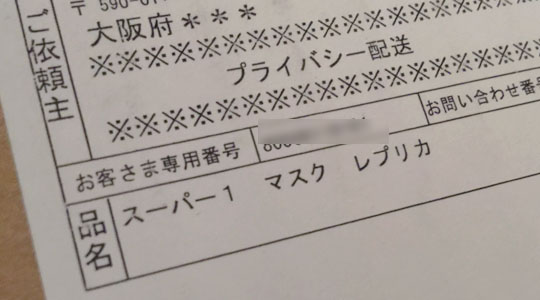 ご依頼主
〒 590-0
大阪府＊＊＊
※※※※※※※※※※※※※※
プライバシー配送
※※※※※※※※※※※※※※
お客さま専用番号
お問い合わせ番
品名
スーパー1 マスク レプリカ